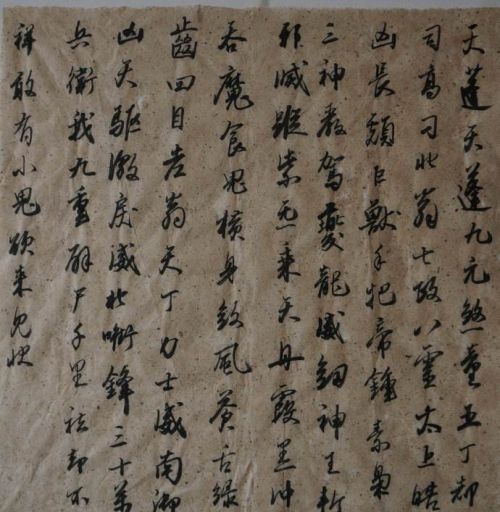 天蓬天蓬九元煞童五丁都
司高刁北翁七政八靈太上皓
凶長顱巨獸手把帝鍾素梟
三神嚴駕夔龍威劍神王斬
邪滅蹤紫炁乘天丹霞赫沖
吞魔食鬼橫身飲風蒼舌綠
齒四目老翁天丁力士威南禦
凶天驅激戾威北啣鋒三十萬
兵衛我九重辟尸千里祛却不
祥敢有小鬼欲來見狀